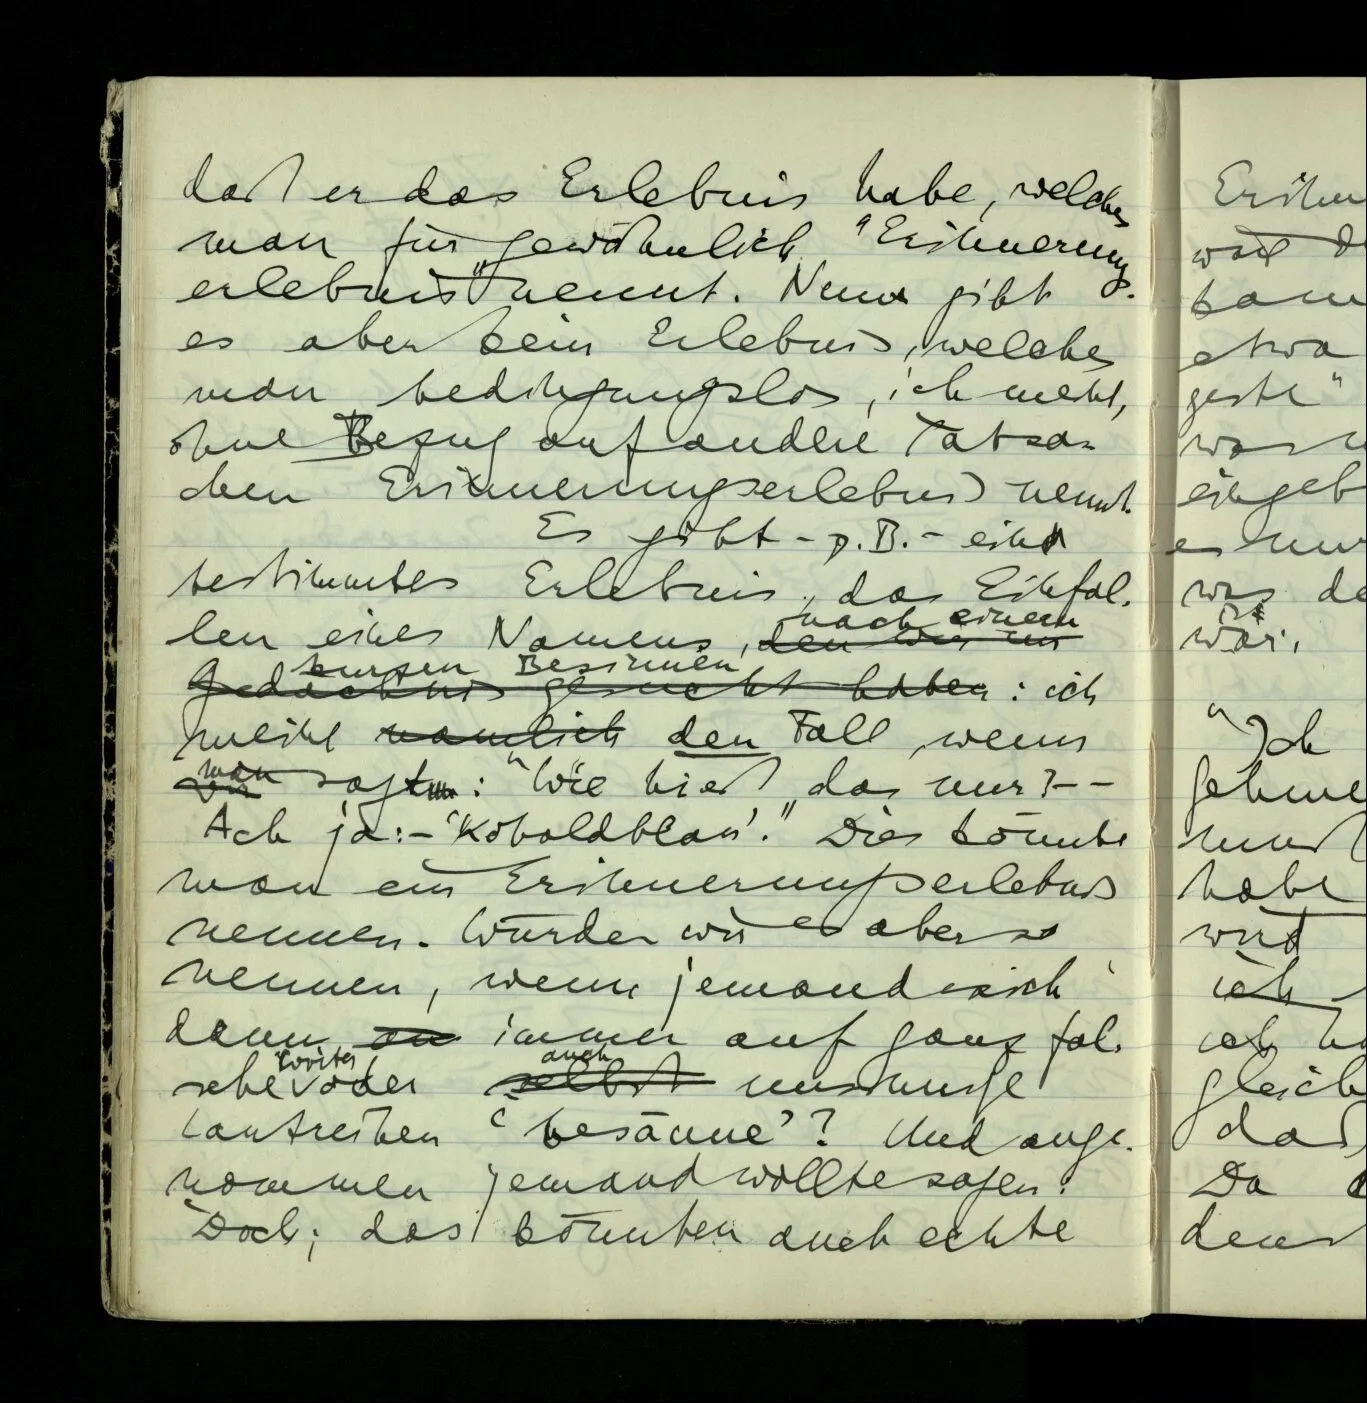 daß er das Erlebnis habe, welches
man für gewöhnlich "Erinnerungs-
erlebnis" nennt. Nun gibt
es aber kein Erlebnis, welches
man bedingungslos, ich meine,
ohne Bezug auf andere Tatsa-
chen Erinnerungserlebnis nennt.
Es gibt – z.B. – ein
bestimmtes Erlebnis, das Einfal-
len eines Namens, den wir im
nach einem
kurzen Besinnen
Gedächtnis gesucht haben: ich
meine nämlich den Fall, wenn
man
wir sagt: "Wie hieß das nur? – –
Ach ja: – 'Koboldblau'." Dies könnte
man ein Erinnerungserlebnis
nennen. Würden wir es aber so
nennen, wenn jemand sich
dann an immer auf ganz fal-
Wörter auch
sche oder selbst unsinnige
Lautreihen 'besänne'? Und ange-
nommen jemand wollte sagen:
Doch; das könnten auch echte
Erinn
was
kann
etwa
geste"
eingeb
es nur
was de
ist
wär.
"Ich
habe
wird
ich
ich ha
gleich
daß
Da